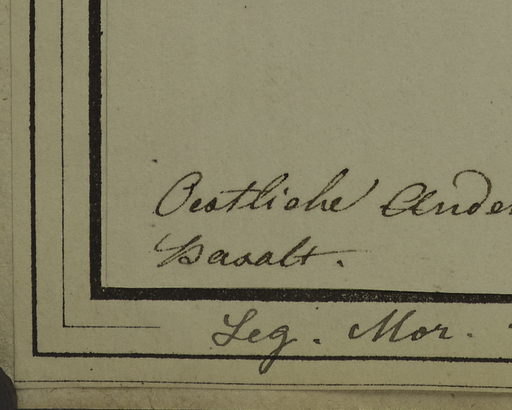 Oestliche Ander
Basalt.
Leg. Mor.